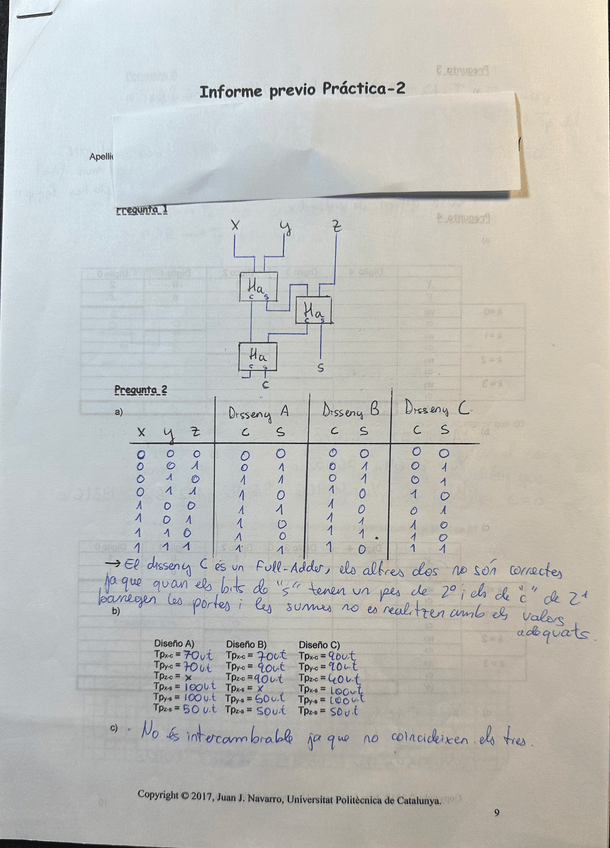 Informe previo Práctica-2
Apelli
Pregunta 1
X y z
Ha
c s
Ha
c s
Ha
c s
c
s
Pregunta 2
a)
Disseny A Disseny B Disseny C
X y z c s c s c s
0 0 0 0 0 0 0 0 0
0 0 1 0 1 0 1 0 1
0 1 0 1 1 1 1 0 1
0 1 1 1 0 1 0 1 0
1 0 0 1 1 1 1 0 1
1 0 1 1 0 1 0 1 0
1 1 0 1 0 1 1 1 0
1 1 1 1 1 1 0 1 1
→ El disseny C és un Full-Adder, els altres dos no són correctes
ja que quan els bits de "s" tenen un pes de 2⁰ i els de "c" de 2¹
barregen les portes i les sumes no es realitzen amb els valors
adequats.
b)
Diseño A) Diseño B) Diseño C)
Tpx-c = 70u.t Tpx-c = 70u.t Tpx-c = 90u.t
Tpy-c = 70u.t Tpy-c = 90u.t Tpy-c = 90u.t
Tpz-c = x Tpz-c = 90u.t Tpz-c = 40u.t
Tpx-s = 100u.t Tpx-s = x Tpx-s = 100u.t
Tpy-s = 100u.t Tpy-s = 50u.t Tpy-s = 100u.t
Tpz-s = 50u.t Tpz-s = 50u.t Tpz-s = 50u.t
c) · No és intercambiable ja que no coincideixen els tres.
Copyright © 2017, Juan J. Navarro, Universitat Politècnica de Catalunya.
9